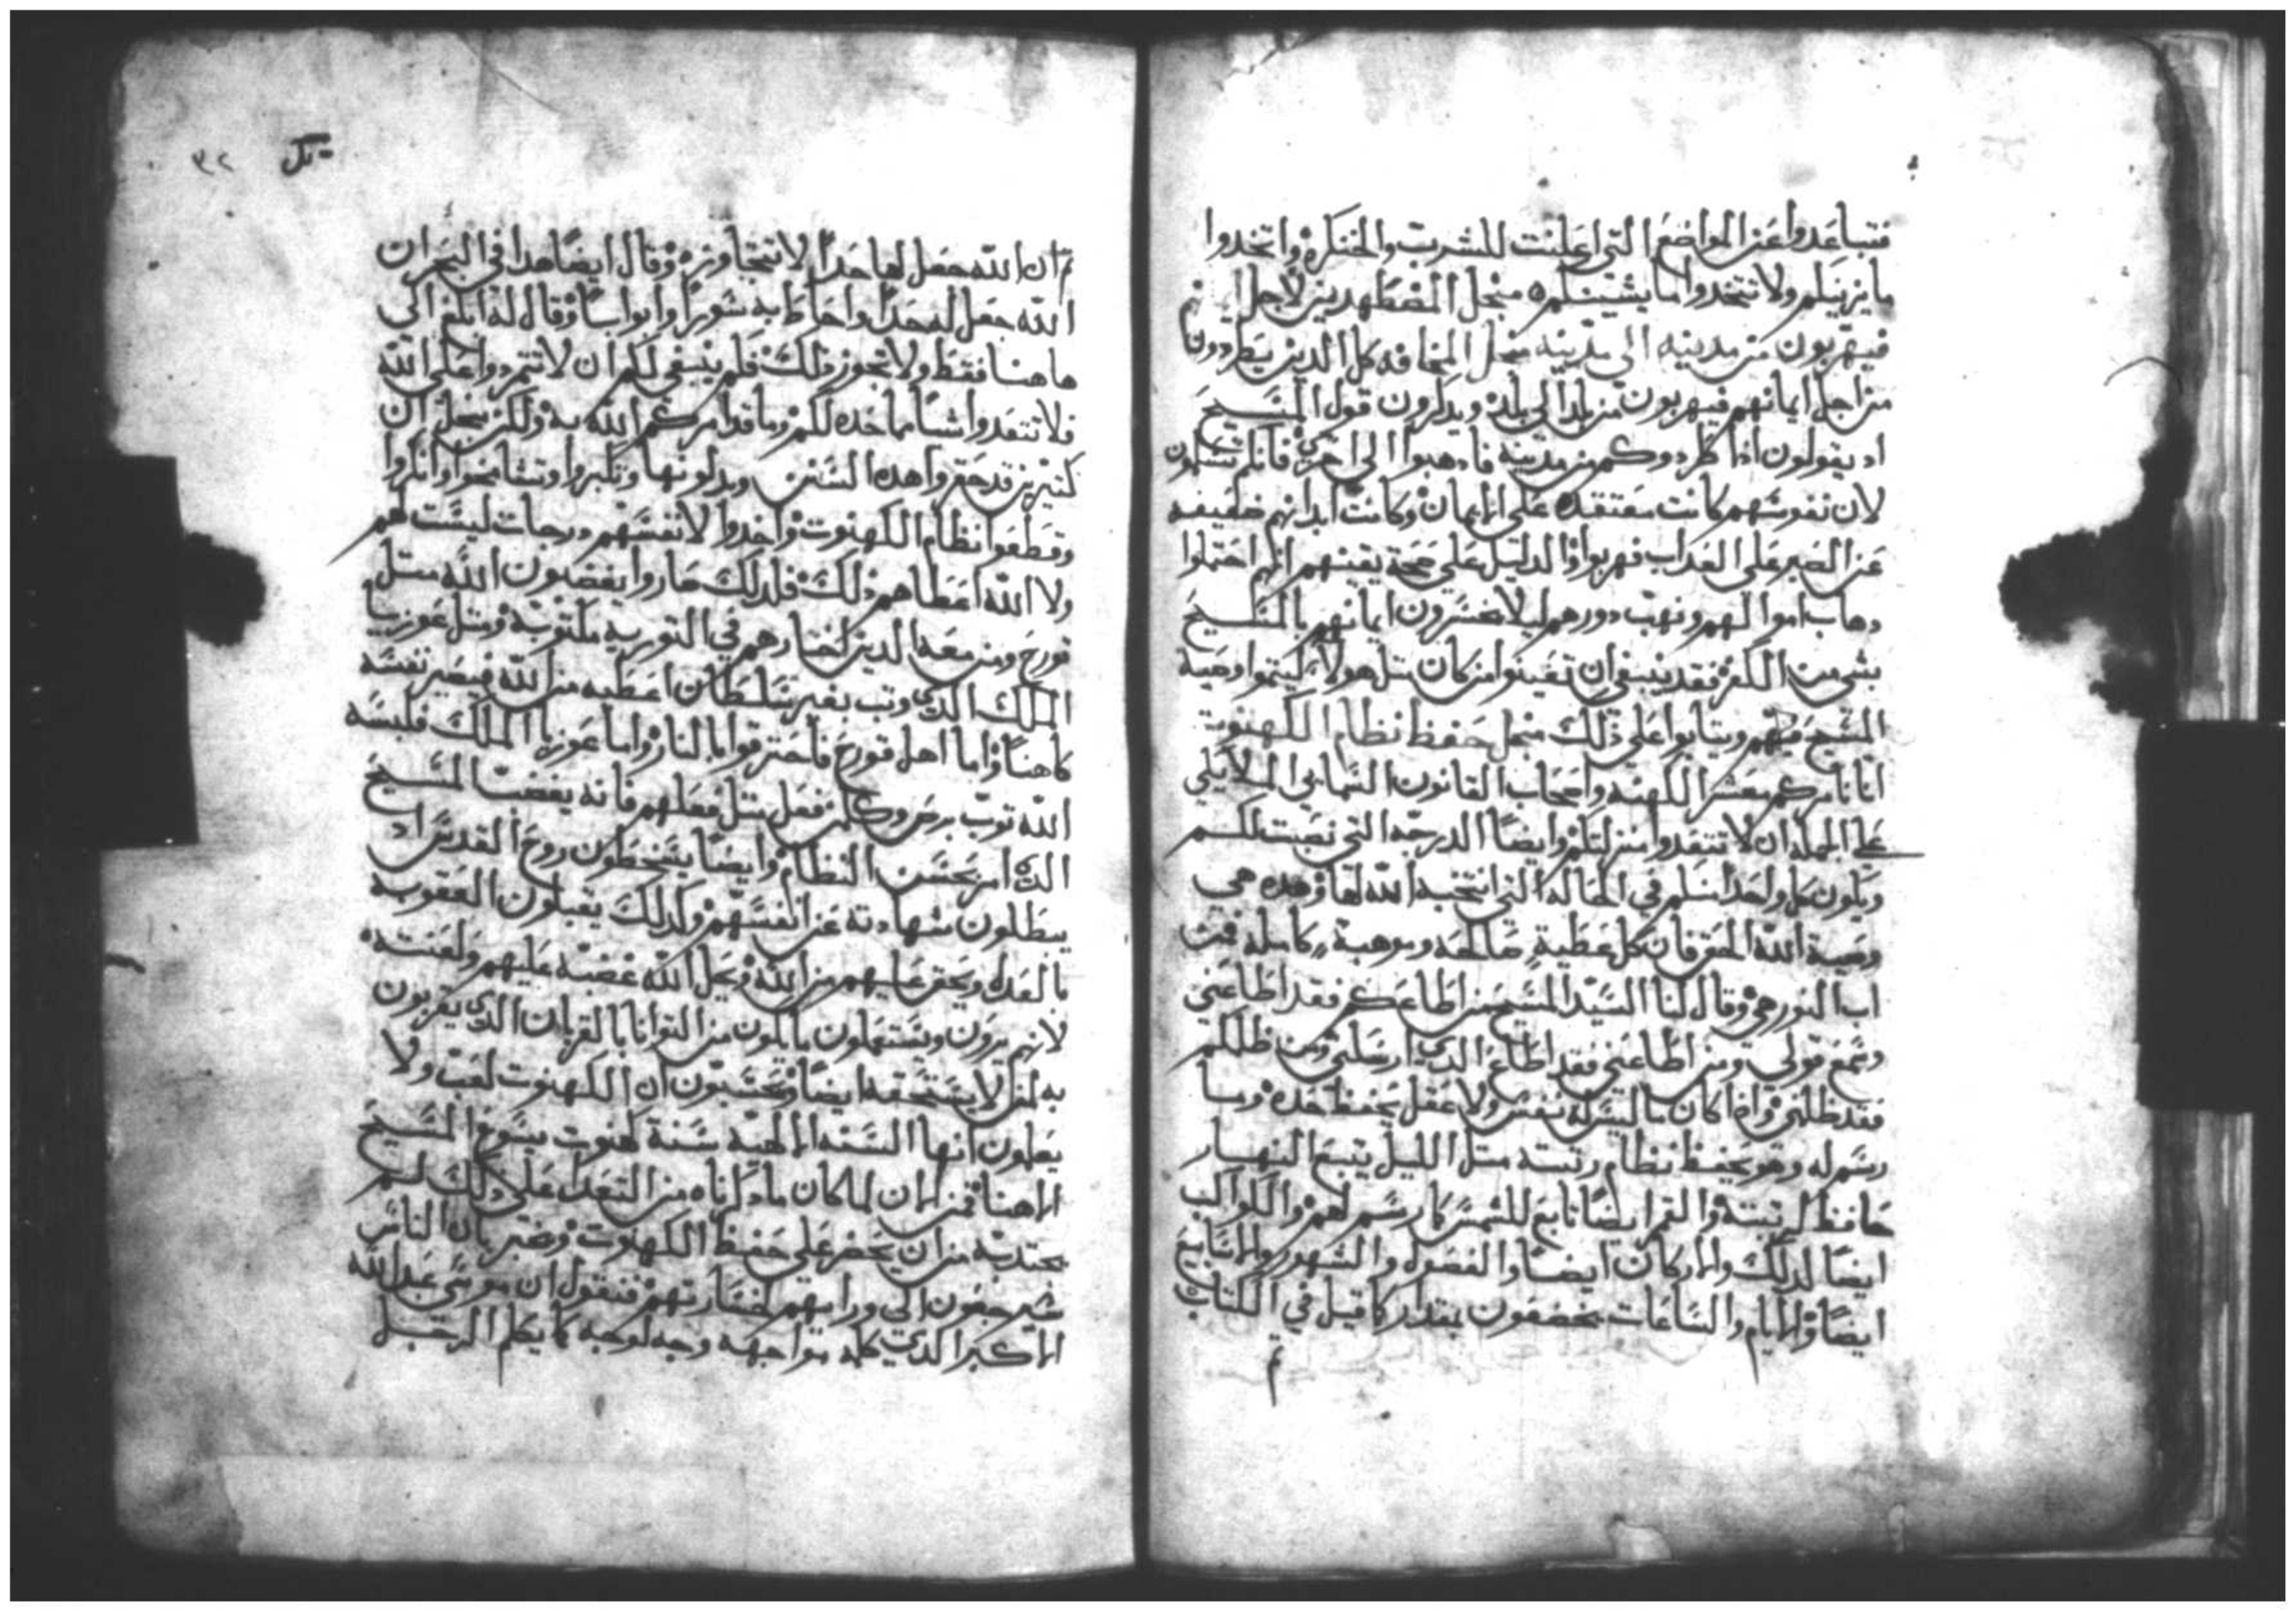 فتباعدوا عن المواضع التي اعلنت للشرب والحنكره واتخدوا
ما يزينكم ولا تتخدوا ما يشينكم من اجل المضطهدين لاجل
فيهربون من مدينه الى مدينه من اجل المخافه كل الدين يطردون
من اجل ايمانهم فيهربون من بلد الى بلد ويدكرون قول المسيح
اد يقولون ادا طردوكم من مدينة فادهبوا الى اخرى فانكم
لان نفوسهم كانت معتقده على الايمان وكانت ابدانهم ضعيفه
عن الصبر على العداب فهربوا والدليل على صحة يقينهم انهم احتملوا
دهاب اموالهم ونهب دورهم ليلا يخسرون ايمانهم بالمسيح
بشي من الكفر فقد ينبغي ان تعينوا من كان مثل هولاء ليتموا وصية
المسيح فيهم ويثابوا على ذلك من اجل حفظ نظام الكهنوت
انا نامركم معشر الكهنه واصحاب القانون السمايى الملايكي
على الجمله ان لا تتعدوا منزلتكم وايضا الدرجه التي نصبت لكم
ويكون كل واحد منكم في الحاله التي انتخبه الله لها وهده هي
وصية الله الحق فان كل عطية صالحه وموهبة كامله فمن
اب النور هي وقال لنا السيد المسيح من اطاعكم فقد اطاعني
وسمع قولي ومن اطاعني فقد اطاع الدي ارسلني ومن ظلمكم
فقد ظلمني وادا كان ما ليس له نفس ولا عقل يحفظ حده وما
رسم له وهو يحفظ نظام رتبته مثل الليل يتبع النهار
حافظ لرتبته والقمر ايضا تابع للشمس كما رسم لهم والكواكب
ايضا لدلك والاركان ايضا والفصول والشهور والاسابيع
ايضا والايام والساعات يخضعون بمقدار كما قيل في الكتاب
تم ان الله جعل لها حدا لا تتجاوزه وقال ايضا هدا في البحر ان
الله جعل له حدا واحاط به سورا وابوابا وقال له ابلغ الى
هاهنا فقط ولا تجوز ذلك فكم ينبغي لكم ان لا تتمردوا على الله
فلا تتعدوا شيا مما حده لكم وما قد امركم الله به ولكن من اجل ان
كتيرين قد حقروا هده السنن وتكبروا وتشامخوا وانكروا
وقطعوا نظام الكهنوت واخدوا لانفسهم درجات ليست لهم
ولا الله اعطاهم ذلك فلدلك صاروا يغضبون الله متل
قورح ومن معه الدين اخبارهم في التوريه مكتوبة ومثل عوزيا
الملك الدي وتب بغير سلطان اعطيه من الله فيصير نفسه
كاهنا واما اهل قورح فاحترقوا بالنار واما عوزيا الملك فلبسه
الله توب برص وكلمن فعل متل فعلهم فانه يغضب المسيح
الدي امر بحسن النظام وايضا يسخطون روح القدس اد
يبطلون شهادته عن انفسهم ولدلك يقبلون العقوبه
بالعدل ويحق عليهم من الله ويحل الله غضبه عليهم ولعنته
لانهم يزرون ويستهلون ما يكون من التوانا بالقربان الدي يقربون
به لمن لا يستحقه ايضا ويحتسبون ان الكهنوت لعب ولا
يعلمون انها السنه الالهيه سنة كهنوت يسوع المسيح
الاهنا فمن الان لما كان ما دكرناه من التعدا على دلك لم
من ان يحض على حفظ الكهنوت ونخبر بان الناس
سيرجعون الى ورايهم لخسارتهم فنقول ان موسي عبد الله
الاكبر الدي كلمه مواجهه وجه لوجه كما يكلم الرجل